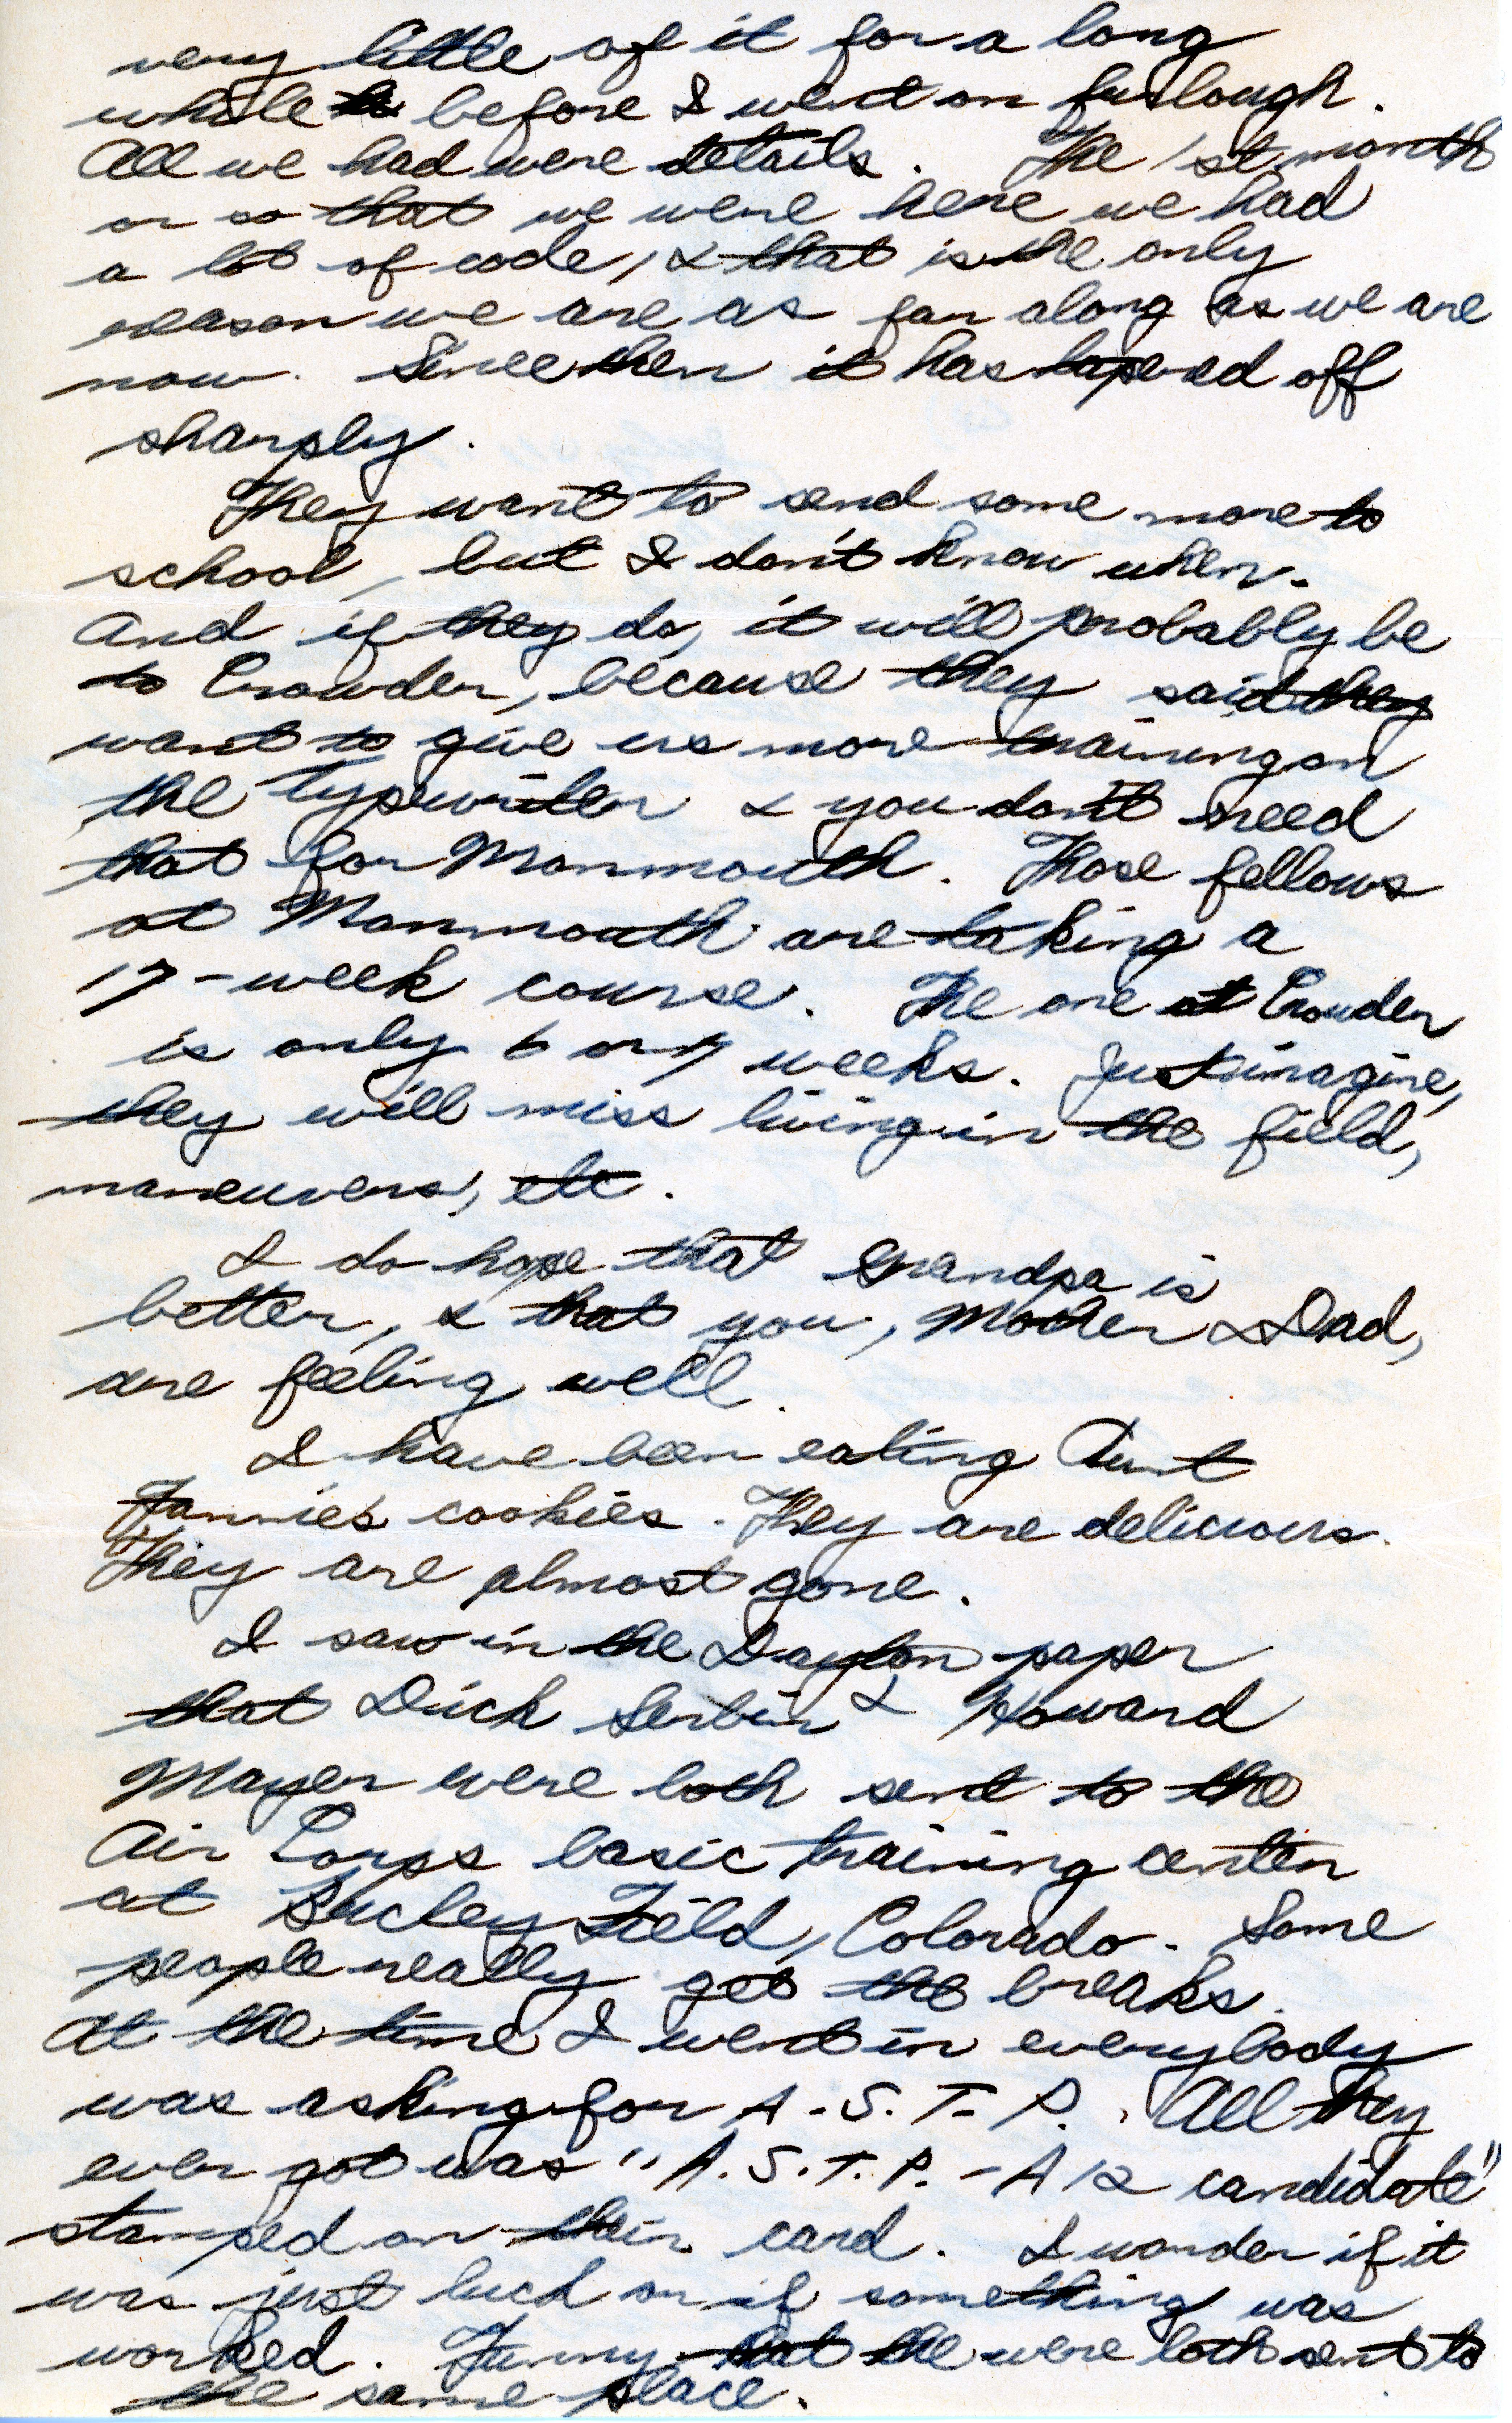 very little of it for a long
while before I went on furlough.
All we had were details. The 1st month
or so that we were here we had
a lot of code, & that is the only
reason we are as far along as we are
now. Since then it has tapered off
sharply.
They want to send some more to
school, but I don't know when.
And if they do, it will probably be
to Crowder, because they said they
want to give us more training on
the typewriter & you don't need
that for Monmouth. Those fellows
at Monmouth are taking a
17-week course. The one at Crowder
is only 6 or 7 weeks. Just imagine,
they will miss living in the field,
maneuvers, etc.
I do hope that Grandpa is
better, & that you, Mother & Dad,
are feeling well.
I have been eating Aunt
Fannie's cookies. They are delicious.
They are almost gone.
I saw in the Dayton paper
that Dick Serbin & Howard
Mayer were both sent to the
Air Corps basic training center
at Buckley Field, Colorado. Some
people really get the breaks.
At the time I went in everybody
was asking for A.S.T.P. All they
ever got was "A.S.T.P.-A12 candidate"
stamped on their card. I wonder if it
was just luck or if something was
worked. Funny that the were both sent to
the same place.